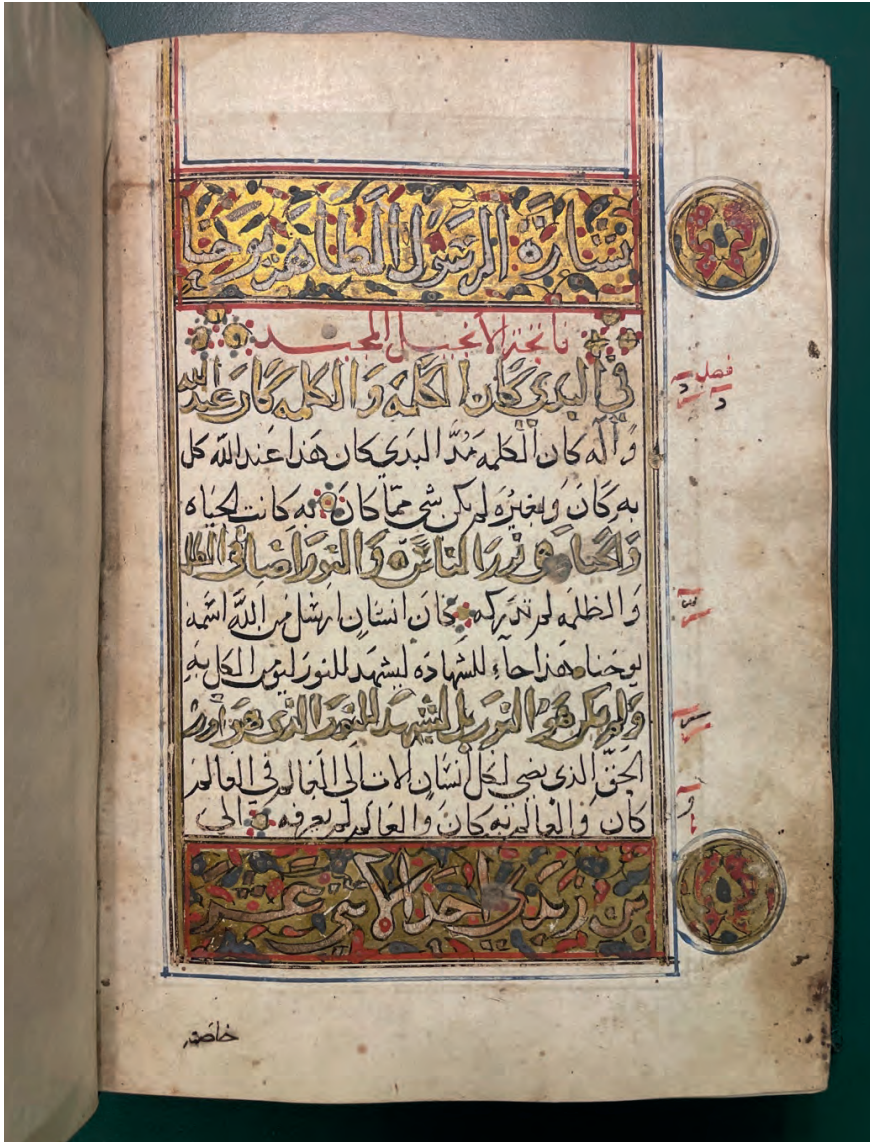 بشارة الرسول الطاهر يوحنا
فاتحة الانجيل المجيد
في البدى كان الكلمة والكلمه كان عند الله
واله كان الكلمه مذ البدى كان هذا عند الله كل
به كان وبغيره لم يكن شى مما كان به كانت الحياه
والحياه هى نور الناس والنور اضا فى الظل
والظلمه لم تدركه كان انسان ارسل من الله اسمه
يوحنا هذا جاء للشهاده ليشهد للنور ليومن الكل به
ولم يكن هو النور بل ليشهد للنور الذى هو نور
الحق الذى يضى لكل انسان الات الى العالم فى العالم
كان والعالم به كان والعالم لم يعرفه الى
بن زبدى احد الاثنى عشر
فصل
خاصته